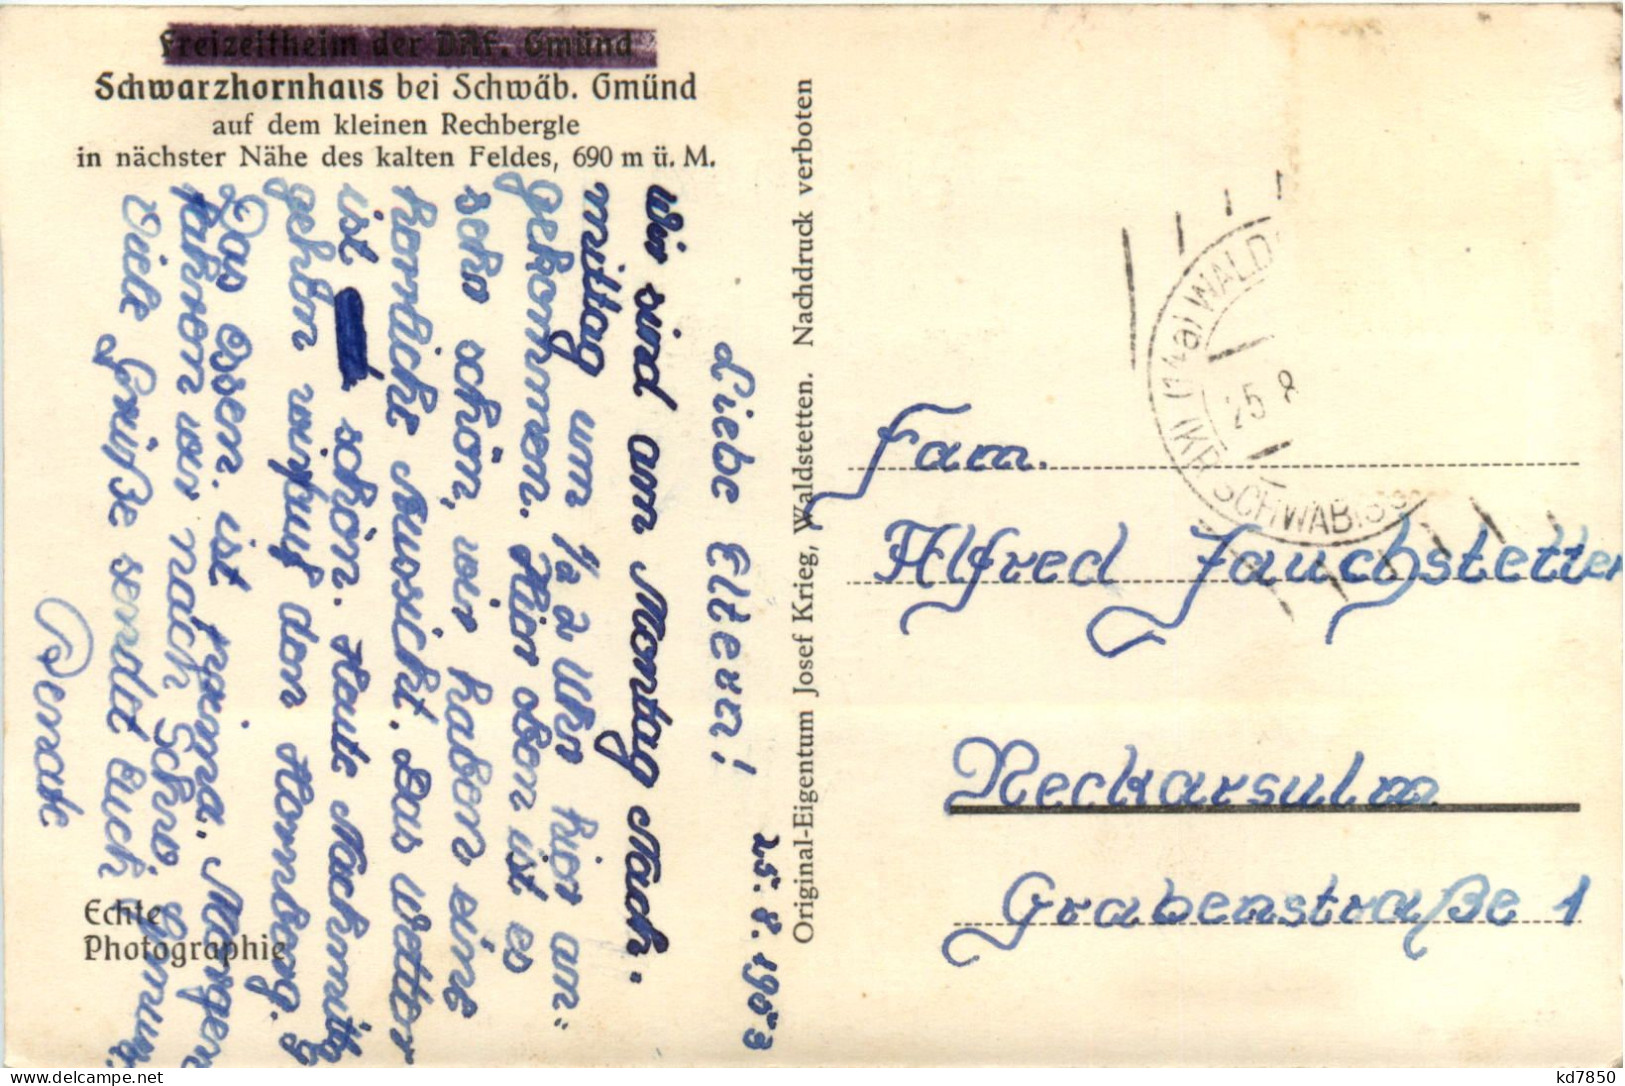 Freizeitheim der DAF. Gmünd
Schwarzhornhaus bei Schwäb. Gmünd
auf dem kleinen Rechbergle
in nächster Nähe des kalten Feldes, 690 m ü. M.
25.8.1953
Liebe Eltern!
Wir sind am Montag Nach-
mittag um 1/2 2 Uhr hier an-
gekommen. Hier oben ist es
sehr schön, wir haben eine
herrliche Aussicht. Das Wetter
ist schön. Heute Nachmittag
gehen wir auf den Hornberg.
Das essen ist prima. Morgen
fahren wir nach Schw. Gmünd.
Viele Grüße sendet Euch
Renate
Echte
Photographie
Original-Eigentum Josef Krieg, Waldstetten. Nachdruck verboten
(14a) WALD
25.8
SCHWÄB.
Fam.
Alfred Jauchstetter
Neckarsulm
Grabenstraße 1
kd7850